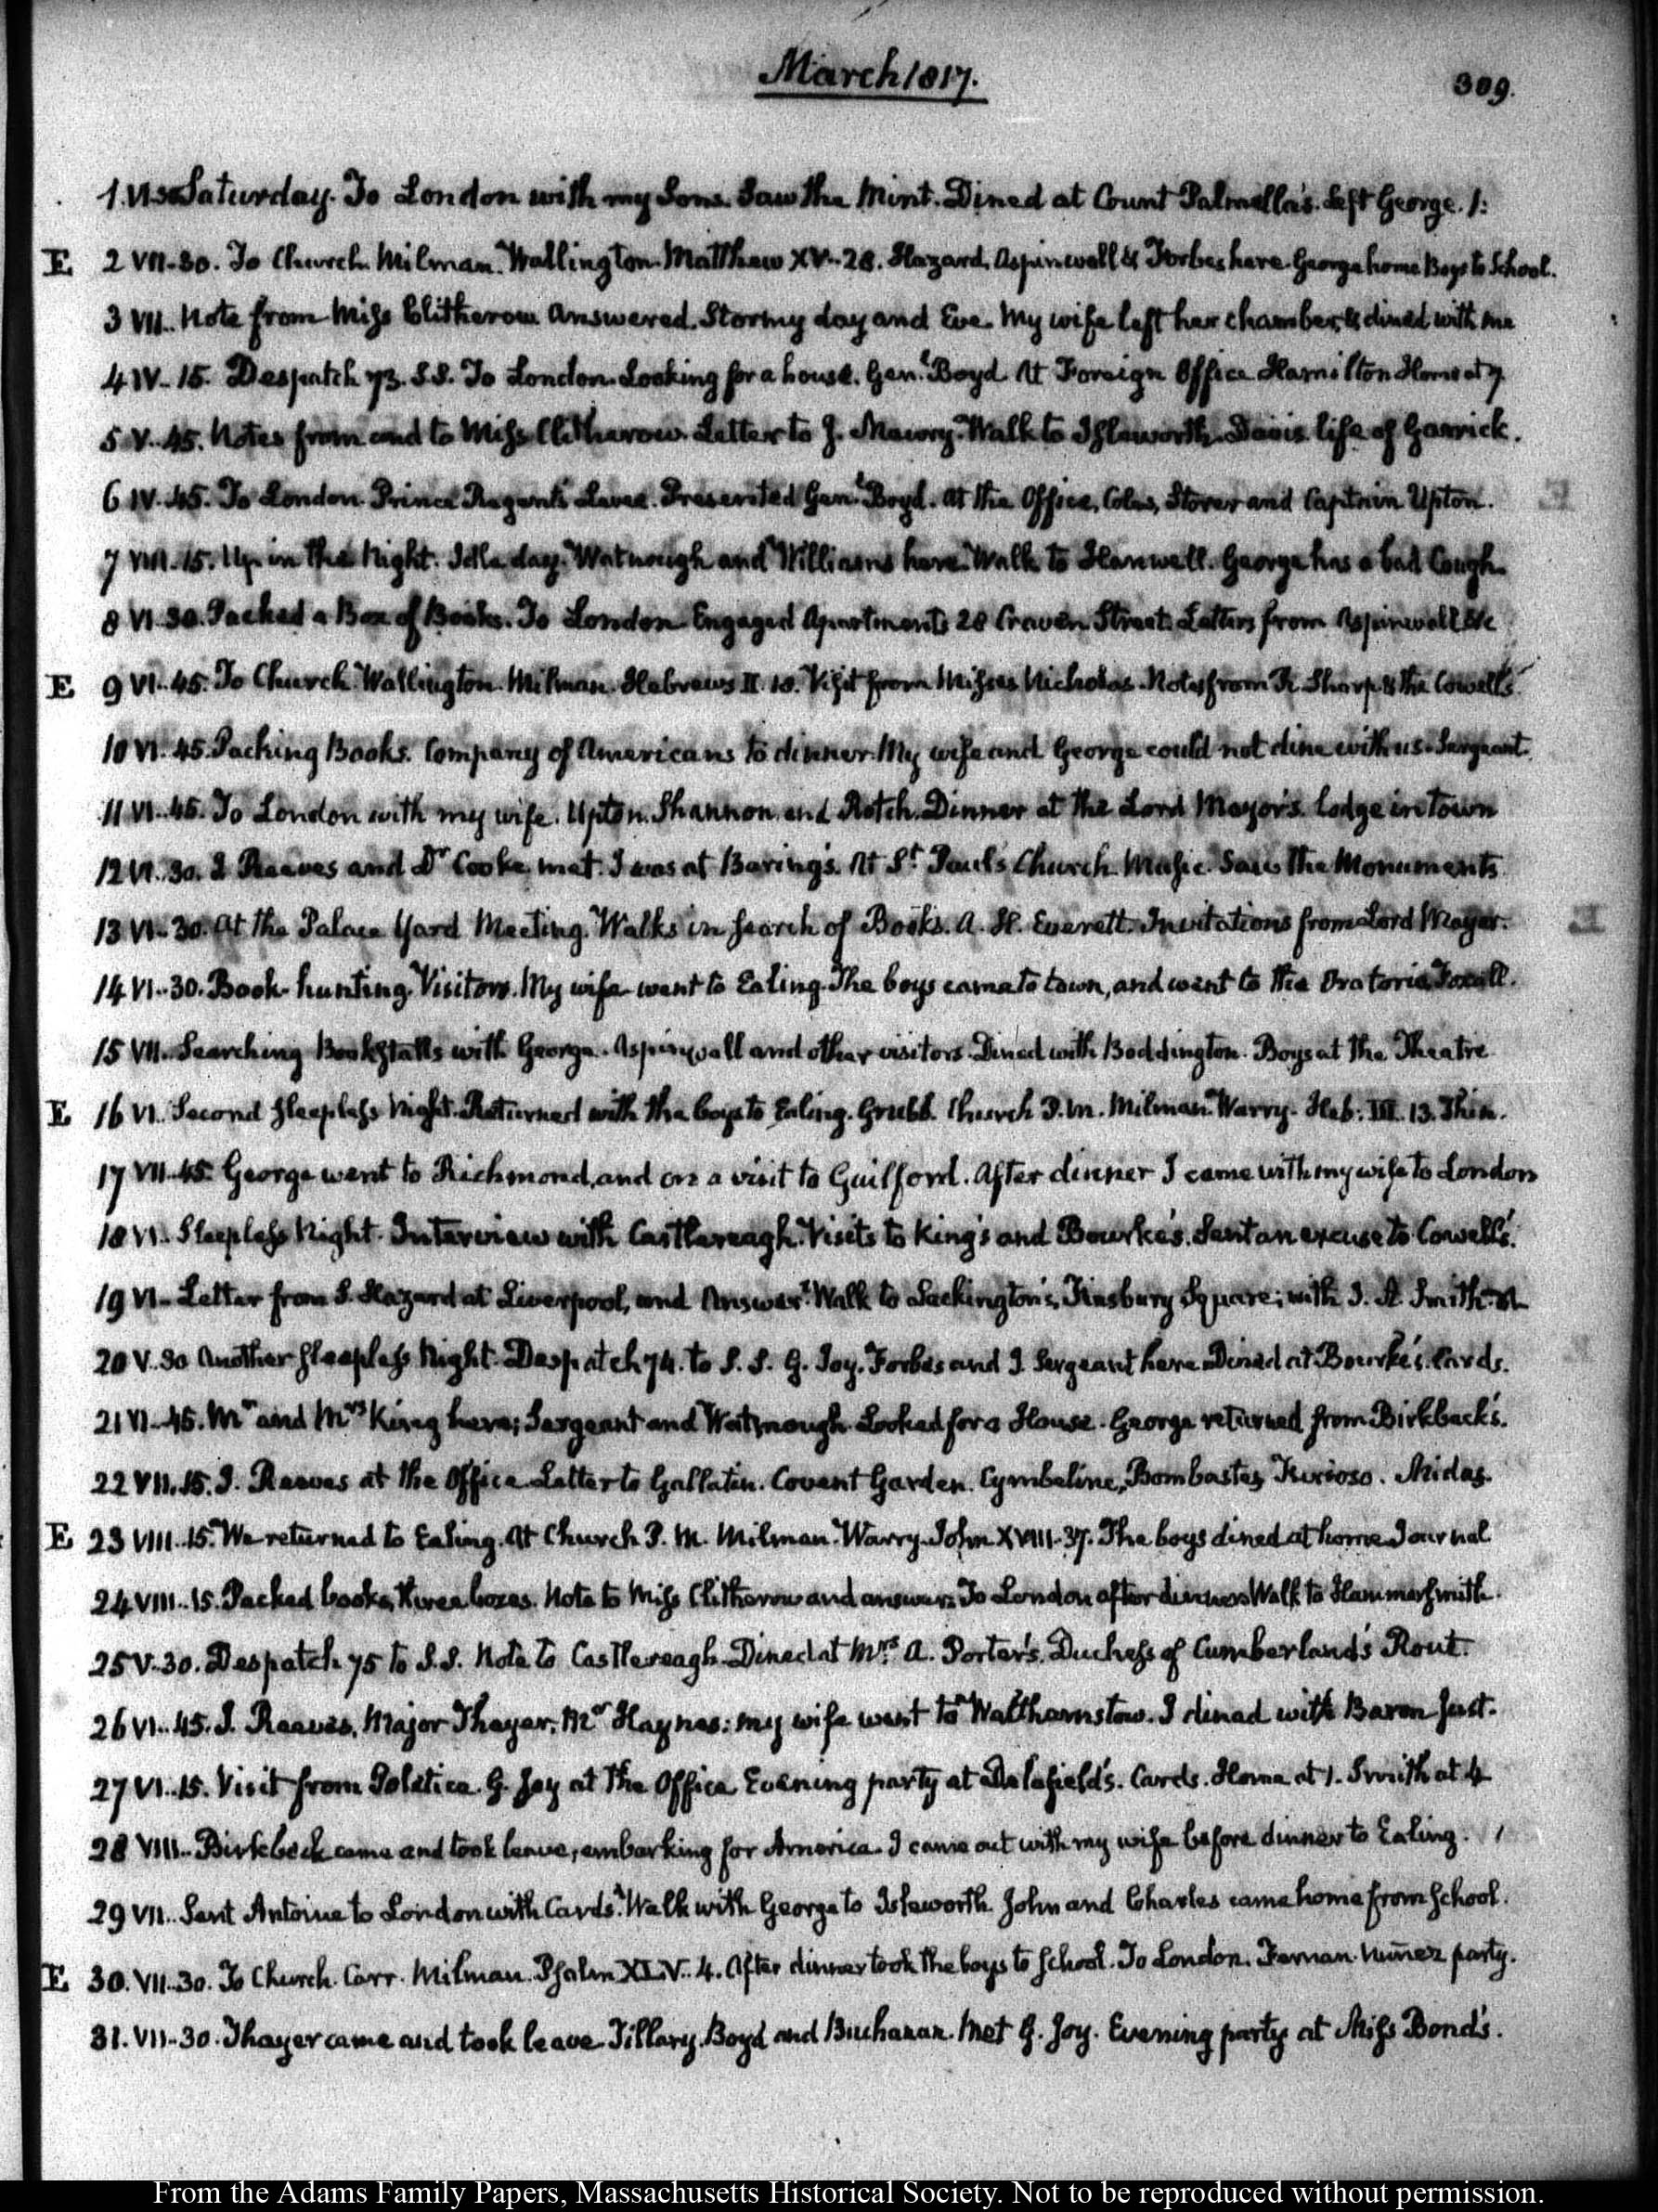 March 1817.
309.
1. VI.30 Saturday. To London with my Sons. Saw the Mint. Dined at Count Palmella's. Left George. 1:
E 2 VII.30. To Church. Milman. Wallington. Matthew XV. 28. Hazard, Aspinwall & Forbes here. George home Boys to School.
3 VII.. Note from Miss Clitherow. Answered. Stormy day and Eve. My wife left her chamber, & dined with me
4 IV. 15. Despatch 73. S.S. To London. Looking for a house. Genl. Boyd. At Foreign Office Hamilton Home at 7
5 V. 45. Notes from and to Miss Clitherow. Letter to J. Maury. Walk to Isleworth. Davies life of Garrick.
6 IV. 45. To London. Prince Regent's Levee. Presented Genl. Boyd. At the Office, Coles, Storer and Captain Upton.
7 VIII. 15. Up in the Night. Idle day. Watmough and Williams here. Walk to Hanwell. George has a bad Cough.
8 VI. 30. Packed a Box of Books. To London. Engaged Apartments 28 Craven Street. Letters from Aspinwall &c
E 9 VI. 45. To Church. Wallington. Milman. Hebrews II. 10. Visit from Misses Nicholas. Notes from R. Sharp & the Cowells.
10 VI. 45. Packing Books. Company of Americans to dinner. My wife and George could not dine with us. Sargeant.
11 VI. 45. To London with my wife. Upton, Shannon, and Rotch. Dinner at the Lord Mayor's. Lodge in town
12 VI. 30. J. Reeves and Dr Cooke met. I was at Baring's. At St Paul's Church. Music. Saw the Monuments
13 VI. 30. At the Palace Yard Meeting. Walks in search of Books. A. H. Everett. Invitations from Lord Mayor.
14 VI. 30. Book-hunting. Visitors. My wife went to Ealing. The boys came to town, and went to the Oratorio. Foxall.
15 VII. Searching Bookstalls with George. Aspinwall and other visitors. Dined with Boddington. Boys at the Theatre
E 16 VI. Second sleepless Night. Returned with the boys to Ealing. Grubb. Church P.M. Milman. Warry. Heb: III. 13. Thin.
17 VII. 45. George went to Richmond, and on a visit to Guilford. After dinner I came with my wife to London
18 VI. Sleepless Night. Interview with Castlereagh. Visits to King's and Bourke's. Sent an excuse to Cowell's.
19 VI. Letter from S. Hazard at Liverpool, and Answer. Walk to Lackington's, Finsbury Square; with J. A. Smith.
20 V. 30 Another sleepless Night. Despatch 74. to S. S. G. Joy. Forbes and J. Sergeant here. Dined at Bourke's. Cards.
21 VI. 45. Mr and Mrs King here; Sargeant and Watmough. Looked for a House. George returned from Birkbeck's.
22 VII. 15. J. Reeves at the Office. Letter to Gallatin. Covent Garden. Cymbeline, Bombastes Furioso. Midas.
E 23 VIII. 15. We returned to Ealing. At Church P. M. Milman. Warry. John XVIII. 37. The boys dined at home. Journal
24 VIII. 15. Packed books, three boxes. Note to Miss Clitherow and answer. To London after dinner. Walk to Hammersmith.
25 V. 30. Despatch 75 to S.S. Note to Castlereagh. Dined at Mrs A. Porter's. Duchess of Cumberland's Rout.
26 VI. 45. J. Reeves, Major Thayer, Mr Haynes: my wife went to Walthamstow. I dined with Baron Just.
27 VI. 15. Visit from Poletica. G. Joy at the Office. Evening party at Delafield's. Cards. Home at 1. Smith at 4
28 VIII.. Birkbeck came and took leave, embarking for America. I came out with my wife before dinner to Ealing.
29 VII. Sent Antoine to London with Cards. Walk with George to Isleworth. John and Charles came home from School.
E 30. VII. 30. To Church. Carr. Milman. Psalm XLV. 4. After dinner took the boys to School. To London. Fernan-Nuñez party.
31. VII. 30. Thayer came and took leave. Tillary, Boyd and Buchanan. Met G. Joy. Evening party at Miss Bond's.
From the Adams Family Papers, Massachusetts Historical Society. Not to be reproduced without permission.